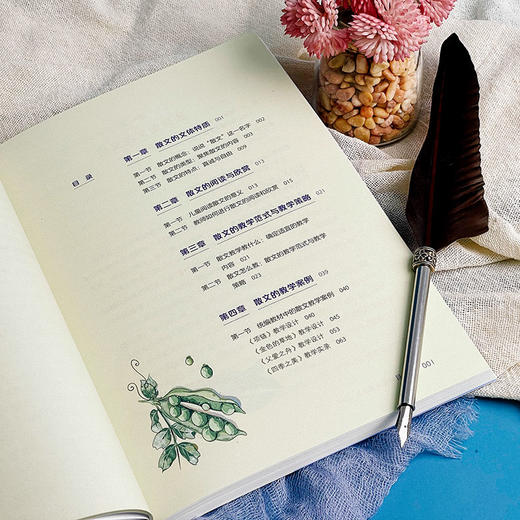 目 录
第一章 散文的文体特质 001
第一节 散文的概念：说说“散文”这一名字 002
第二节 散文的类型：聚焦散文的内容 003
第三节 散文的特点：真诚与自由 009
第二章 散文的阅读与欣赏 013
第一节 儿童阅读散文的意义 013
第二节 教师如何进行散文的阅读和欣赏 015
第三章 散文的教学范式与教学策略 021
第一节 散文教学教什么：确定适宜的教学
内容 021
第二节 散文怎么教：散文的教学范式与教学
策略 023
第四章 散文的教学案例 039
第一节 统编教材中的散文教学案例 040
《项链》教学设计 040
《金色的草地》教学设计 045
《父爱之舟》教学设计 053
《四季之美》教学实录 063
001